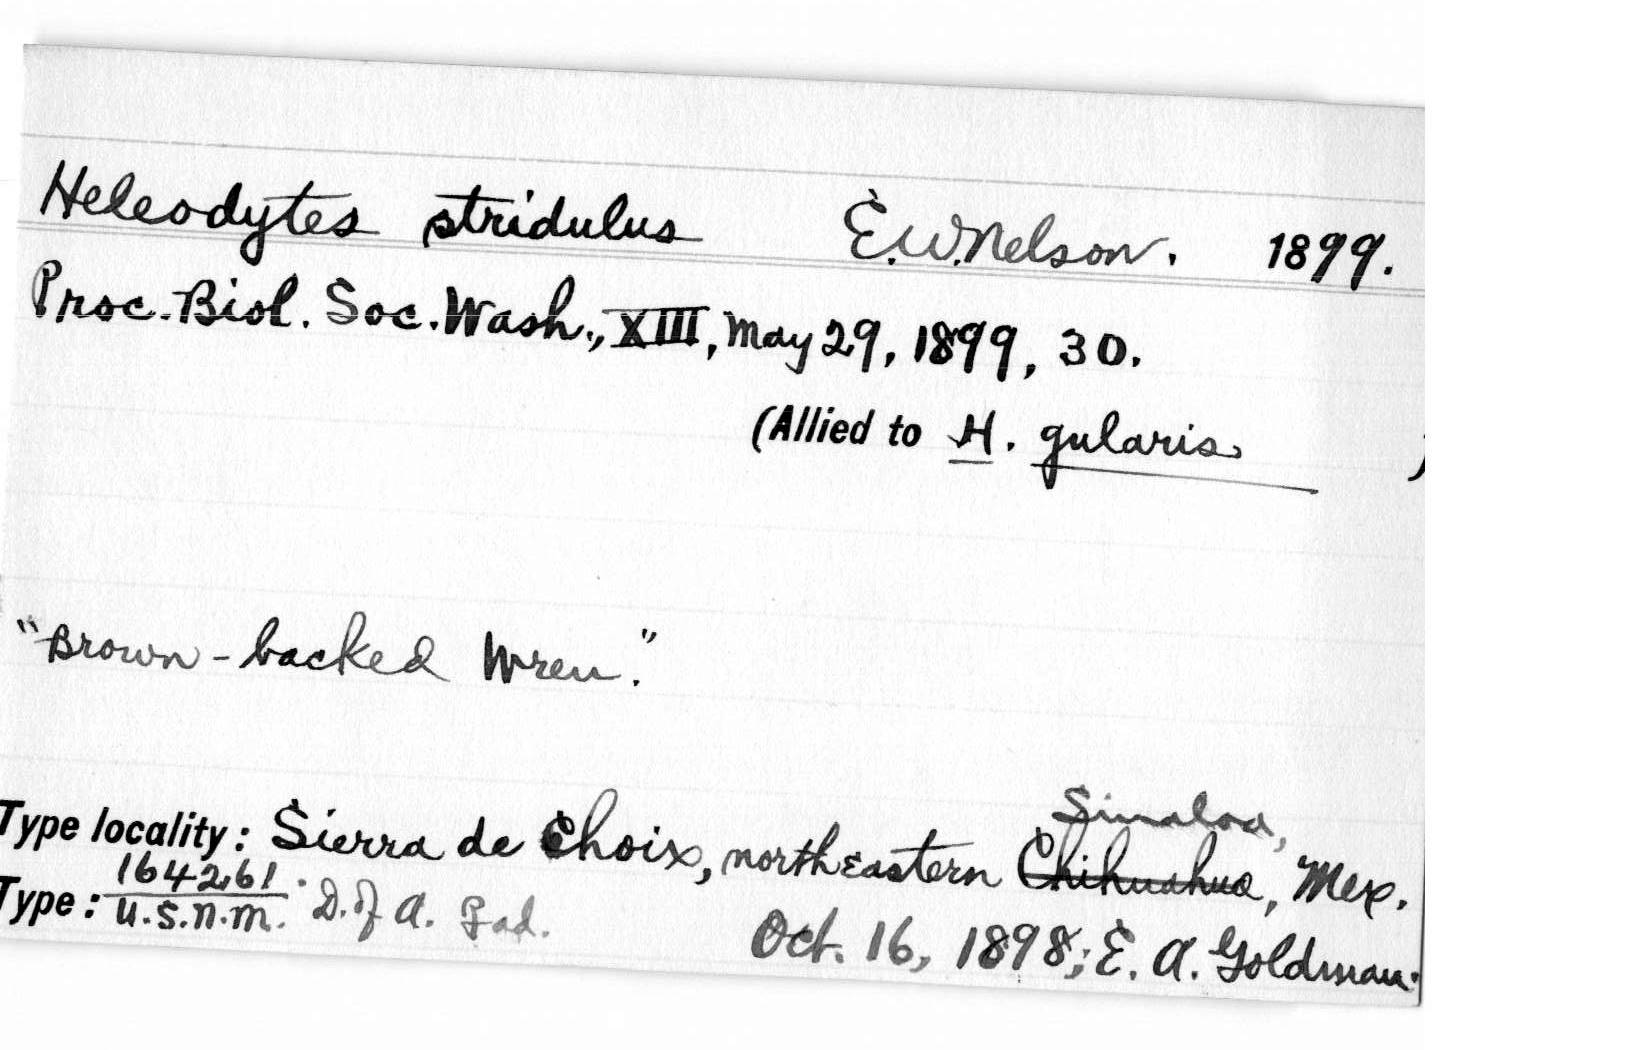 Heleodytes stridulus E.W.Nelson. 1899.
Proc. Biol. Soc. Wash., XIII, May 29, 1899, 30.
(Allied to H. gularis. )
"Brown-backed Wren."
Sinaloa,
Type locality: Sierra de Choix, northeastern Chihuahua, Mex.
Type: 164261 U.S.N.M. D. of A.
Oct. 16, 1898; E. A. Goldman.